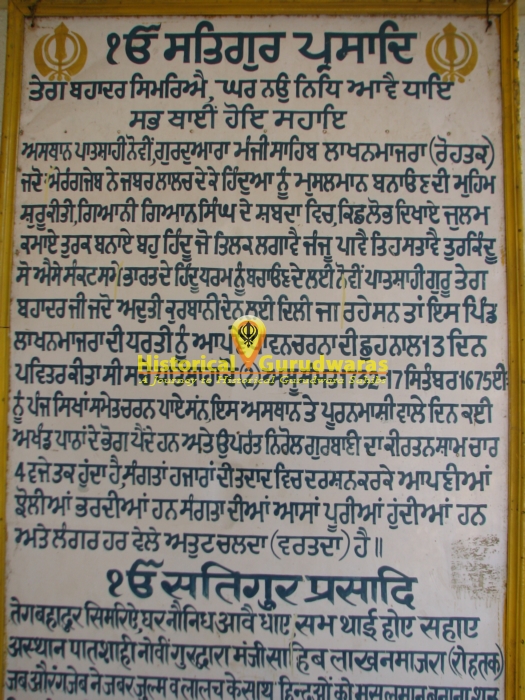 ੴ ਸਤਿਗੁਰ ਪ੍ਰਸਾਦਿ
ਤੇਗ ਬਹਾਦਰ ਸਿਮਰਿਐ, ਘਰ ਨਉ ਨਿਧਿ ਆਵੈ ਧਾਇ
ਸਭ ਥਾਈਂ ਹੋਇ ਸਹਾਇ
ਅਸਥਾਨ ਪਾਤਸ਼ਾਹੀ ਨੌਵੀਂ, ਗੁਰਦੁਆਰਾ ਮੰਜੀ ਸਾਹਿਬ ਲਾਖਨਮਾਜਰਾ (ਰੋਹਤਕ)
ਜਦੋਂ ਔਰੰਗਜੇਬ ਨੇ ਜਬਰ ਲਾਲਚ ਦੇ ਕੇ ਹਿੰਦੂਆਂ ਨੂੰ ਮੁਸਲਮਾਨ ਬਨਾਓਣ ਦੀ ਮੁਹਿਮ
ਸ਼ੁਰੂ ਕੀਤੀ, ਗਿਆਨੀ ਗਿਆਨ ਸਿੰਘ ਦੇ ਸ਼ਬਦਾ ਵਿਚ, ਕਿਛ ਲੋਭ ਦਿਖਾਏ ਜੁਲਮ
ਕਮਾਏ ਤੁਰਕ ਬਨਾਏ ਬਹੁ ਹਿੰਦੂ ਜੋ ਤਿਲਕ ਲਗਾਵੈ ਜੰਜੂ ਪਾਵੈ ਤਿਹ ਸਤਾਵੈ ਤੁਰਕਿੰਦੂ
ਸੋ ਐਸੇ ਸੰਕਟ ਸਮੇਂ ਭਾਰਤ ਦੇ ਹਿੰਦੂ ਧਰਮ ਨੂੰ ਬਚਾਓਣ ਦੇ ਲਈ ਨੌਵੀਂ ਪਾਤਸ਼ਾਹੀ ਗੁਰੂ ਤੇਗ
ਬਹਾਦਰ ਜੀ ਜਦੋਂ ਅਦੁਤੀ ਕੁਰਬਾਨੀ ਦੇਨ ਲਈ ਦਿਲੀ ਜਾ ਰਹੇ ਸਨ ਤਾਂ ਇਸ ਪਿੰਡ
ਲਾਖਨਮਾਜਰਾ ਦੀ ਧਰਤੀ ਨੂੰ ਚਰਨਾ ਦੀ ਛੁਹ ਨਾਲ 13 ਦਿਨ
Historical Gurudwaras
A Journey to Historical Gurudwara Sahibs
ਪਵਿਤਰ ਕੀਤਾ ਸੀ 17 ਸਿਤੰਬਰ 1675 ਈ:
ਨੂੰ ਪੰਜ ਸਿਖਾ ਸਮੇਤ ਚਰਨ ਪਾਏ ਸਨ, ਇਸ ਅਸਥਾਨ ਤੇ ਪੂਰਨਮਾਸ਼ੀ ਵਾਲੇ ਦਿਨ ਕਈ
ਅਖੰਡ ਪਾਠਾਂ ਦੇ ਭੋਗ ਪੈਂਦੇ ਹਨ ਅਤੇ ਉਪਰੰਤ ਨਿਰੋਲ ਗੁਰਬਾਣੀ ਦਾ ਕੀਰਤਨ ਸ਼ਾਮ ਚਾਰ
4 ਵਜੇ ਤਕ ਹੁੰਦਾ ਹੈ, ਸੰਗਤਾਂ ਹਜਾਰਾਂ ਦੀ ਤਦਾਦ ਵਿਚ ਦਰਸ਼ਨ ਕਰਕੇ ਆਪਣੀਆਂ
ਝੋਲੀਆਂ ਭਰਦੀਆਂ ਹਨ ਸੰਗਤਾ ਦੀਆਂ ਆਸਾਂ ਪੂਰੀਆਂ ਹੁੰਦੀਆਂ ਹਨ
ਅਤੇ ਲੰਗਰ ਹਰ ਵੇਲੇ ਅਤੁਟ ਚਲਦਾ (ਵਰਤਦਾ) ਹੈ॥
ੴ ਸਤਿਗੁਰ ਪ੍ਰਸਾਦਿ
तेग बहादूर सिमरिऐ, घर नौ निध आवै धाए, सभ थाई होए सहाए
अस्थान पातशाही नोवीं गुरद्वारा मंजी साहिब लाखनमाजरा (रोहतक)
जब औरंगजेब ने जबर जुल्म व लालच के साथ हिन्दुओं को मुसलमान